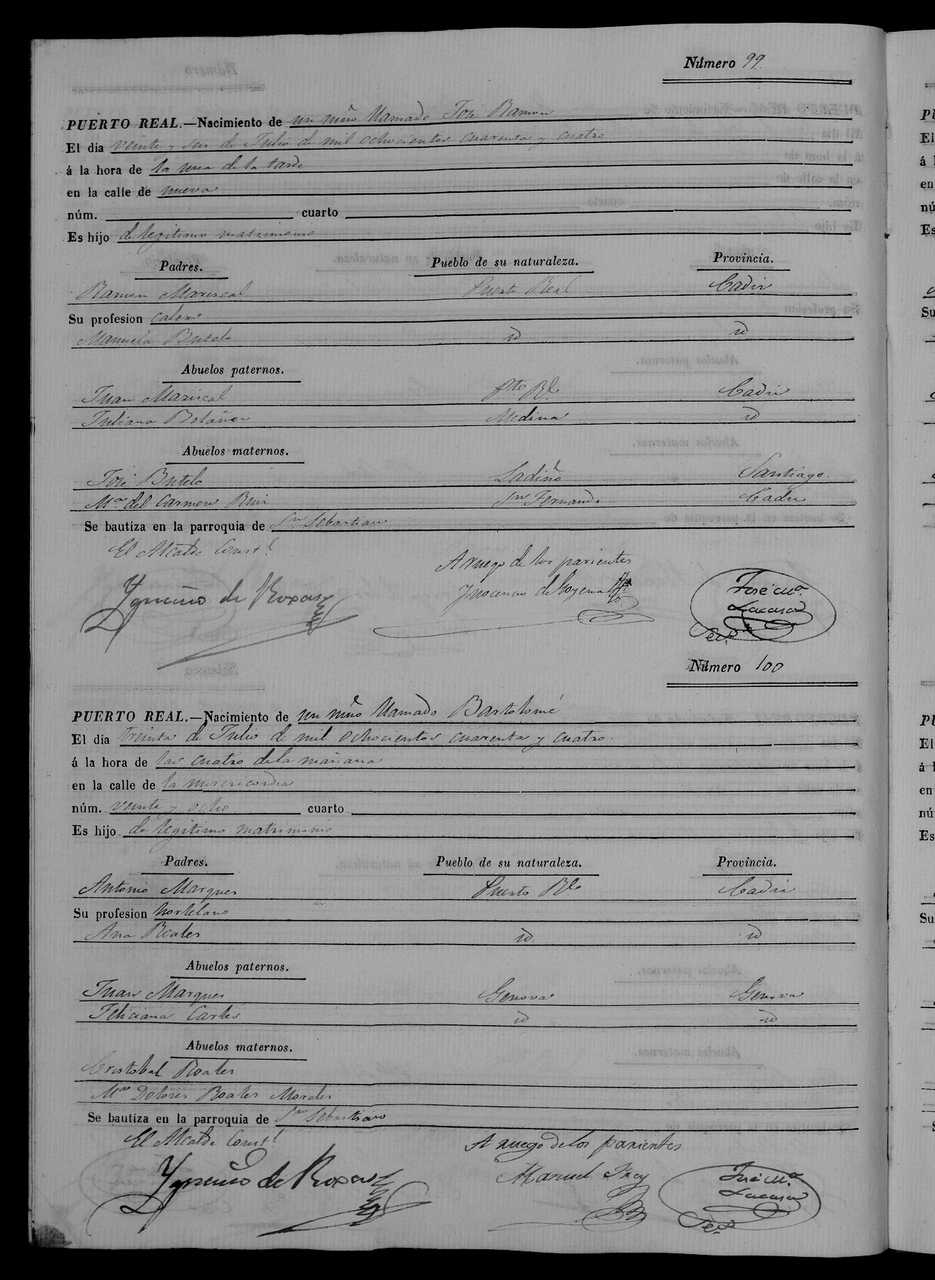 Número 99
PUERTO REAL.—Nacimiento de un niño llamado José Ramon
El dia veinte y seis de Julio de mil ochocientos cuarenta y cuatro
á la hora de la una de la tarde
en la calle de nueva
núm. cuarto
Es hijo de legitimo matrimonio
Padres. Pueblo de su naturaleza. Provincia.
Ramon Mariscal Puerto Real Cadiz
Su profesion
Manuela Butelo id id
Abuelos paternos.
Juan Mariscal Pto Rl Cadiz
Juliana Bolaños Medina id
Abuelos maternos.
José Butelo Santiago
Ma del Carmen Ruiz Sn Fernando Cadiz
Se bautiza en la parroquia de Sn Sebastian
El Alcalde Constl
A ruego de los parientes
Ygnacio de Roxas
José Ma
Lacasa
Número 100
PUERTO REAL.—Nacimiento de un niño llamado Bartolomé
El dia treinta de Julio de mil ochocientos cuarenta y cuatro
á la hora de las cuatro de la mañana
en la calle de la misericordia
núm. veinte y ocho cuarto
Es hijo de legitimo matrimonio
Padres. Pueblo de su naturaleza. Provincia.
Antonio Marques Puerto Rl Cadiz
Su profesion hortelano
Ana Boales id id
Abuelos paternos.
Juan Marques Genova Genova
Feliciana Carles id id
Abuelos maternos.
Cristobal Boales
Ma Dolores Boales Morales
Se bautiza en la parroquia de Sn Sebastian
El Alcalde Constl
A ruego de los parientes
Ygnacio de Roxas
Manuel
José Ma
Lacasa